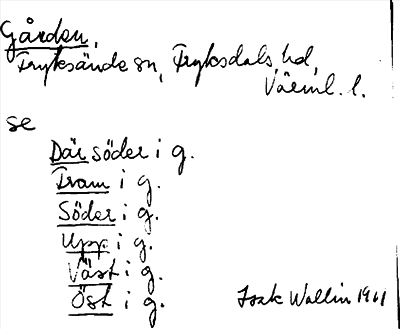 Gården,
Fryksände sn, Fryksdals hd,
Värml. l.
se
Där söder i g.
Fram i g.
Söder i g.
Upp i g.
Väst i g.
Öst i g.
Isak Wallin 1961